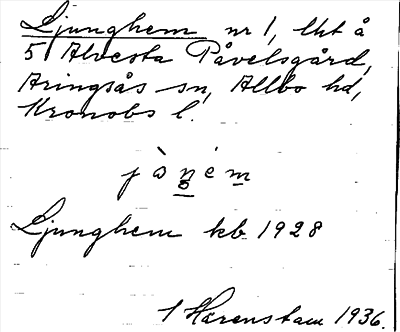 Ljunghem nr 1, lht å
5 Alvesta Påvelsgård,
Aringsås sn, Allbo hd,
Kronobs l.
Ljunghem kb 1928
Harenstam 1936.